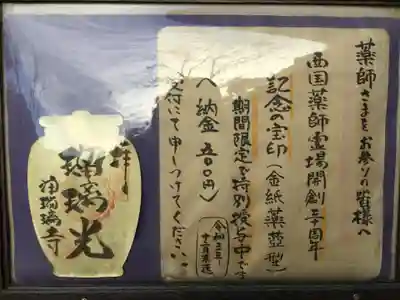 薬師さまをお参りの皆様へ
西国薬師霊場開創三十周年
記念の宝印(金紙薬壺型)
期間限定で特別授与中です
(納金 五〇〇円)
受付にて申しつけてください。
令和二五年
十二月末迄
拝
瑠璃光
浄瑠璃寺